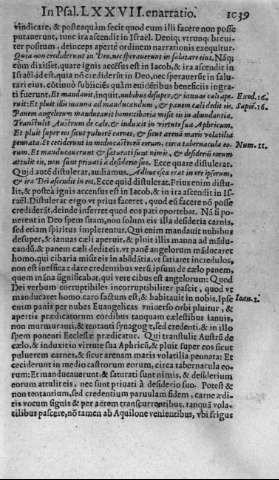 In Psal. LXXVII. enarratio. 1039
vindicare, & posteaquàm fecit quod eum illi facere non posse
putauerunt, tunc ira ascendit in Israël. Deniq; utrunq; breui-
ter positum, deinceps aperte ordinem narrationis exequitur.
Quia non crediderunt in Deo, nec sperauerunt in salutari eius. Nàq;
cum dixisset, quare ignis accensus est in Iacob, & ira ascendit in
Israël: id est, quia nō crediderūt in Deo, nec sperauerūt in salu-
tari eius, cōtinuò subiiciēs quàm euidētibus beneficiis ingra-
ti fuerunt, Et mandauit, inquit, nubibus desuper, & ianuas cæli ape- Exod.16.
ruit: Et pluit illis manna ad manducandum, & panem cæli dedit eis. Sapiē.16.
Panem angelorum manducauit homo: cibaria misit eis in abundantia.
Transtulit Austrum de cælo, & induxit in virtute sua Aphricum,
Et pluit super eos sicut puluerē carnes, & sicut arenā maris volatilia
pennata. Et ceciderunt in medio castrorū eorum, circa tabernacula eo- Num.11.
rum. Et manducauerunt & saturati sunt nimis, & desideriū eorum
attulit eis, non sunt priuati à desiderio suo. Ecce quare distulerat.
Quid autē distulerat, audiamus. Adhuc esca erat in ore ipsorum,
& ira Dei ascendit in eos. Ecce quid distulerat. Prius enim distu-
lit, & postea ignis accensus est in Iacob, & in ira ascendit in Is-
raël. Distulerat ergo vt prius faceret, quod eū facere nō posse
crediderāt, deinde inferret quod eos pati oportebat. Nā si po-
nerent in Deo spem suam, non solùm eis illa desideria carnis,
sed etiam spiritus implerentur. Qui enim mandauit nubibus
desuper, & ianuas cæli aperuit, & pluit illis manna ad mādu-
candū, & panem cæli dedit eis, vt panē angelorum māducaret
homo, qui cibaria misit eis in abūdātia, vt satiaret incredulos,
non est inefficax dare credentibus verū ipsum de cælo panem,
quem manna significabat, qui verè cibus est angelorum: Quod
Dei verbum corruptibiles incorruptibiliter pascit, quod vt
manducaret homo, caro factum est, & habitauit in nobis. Ipse Ioan.1.
enim panis per nubes Euangelicas vniuerso orbi pluitur, &
apertis prædicatorum cordibus tanquam cælestibus ianuis,
non murmuranti, & tentanti synagogæ, sed credenti, & in illo
spem ponenti Ecclesiæ prædicatur. Qui transtulit Austrū de
cælo, & induxit in virtute sua Aphricū, & pluit super eos sicut
puluerem carnes, & sicut arenam maris volatilia pennata: Et
ceciderunt in medio castrorum eorum, circa tabernacula eo-
rum: Et māducauerunt & saturati sunt nimis, & desiderium
eorum attulit eis, nec sunt priuati à desiderio suo. Potest &
non tentantium, sed credentium paruulam fidem, carne ædi-
tis vocum signis & per aërem transcurrentibus, tanquā vola-
tilibus pascere, nō tamen ab Aquilone venientibus, vbi frigus